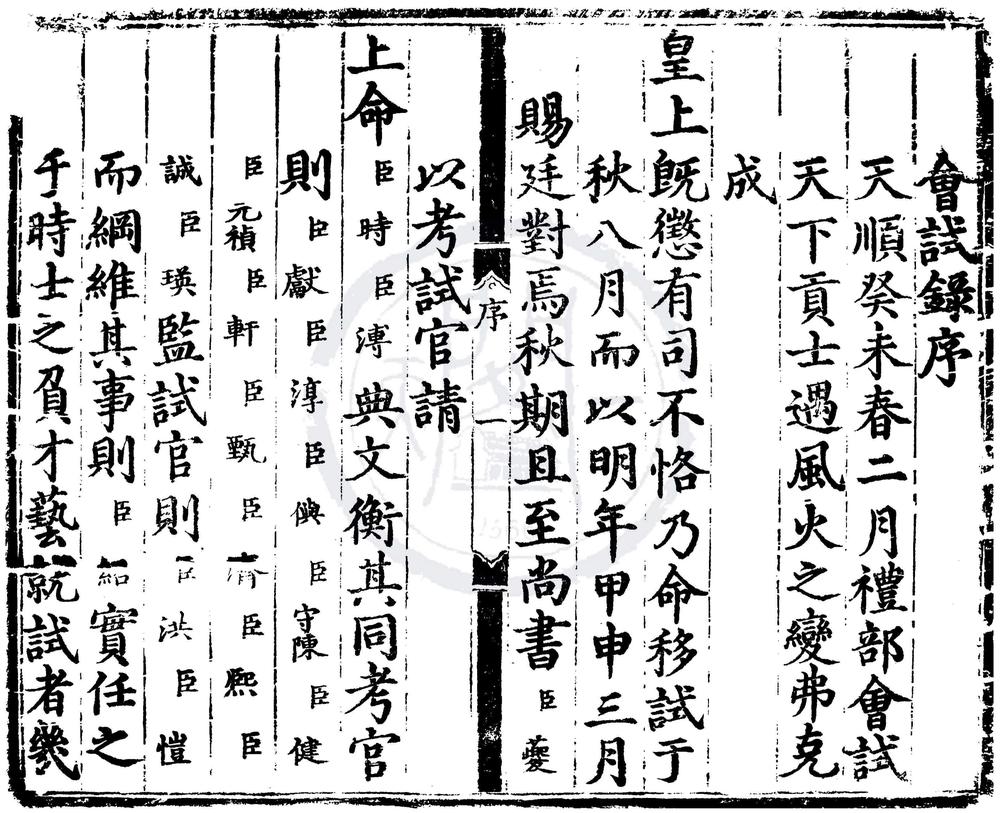 會試錄序
天順癸未春二月禮部會試
天下貢士遇風火之變弗克
成
皇上旣懲有司不恪乃命移試于
秋八月而以明年甲申三月
賜廷對焉秋期且至尚書臣夔
序
一
以考試官請
上命臣時臣溥典文衡其同考官
則臣獻臣淳臣㒜臣守陳臣健
臣元禎臣軒臣甄臣濟臣熙臣
誠臣瑛監試官則臣洪臣愷
而綱維其事則臣紹實任之
于時士之負才藝就試者幾